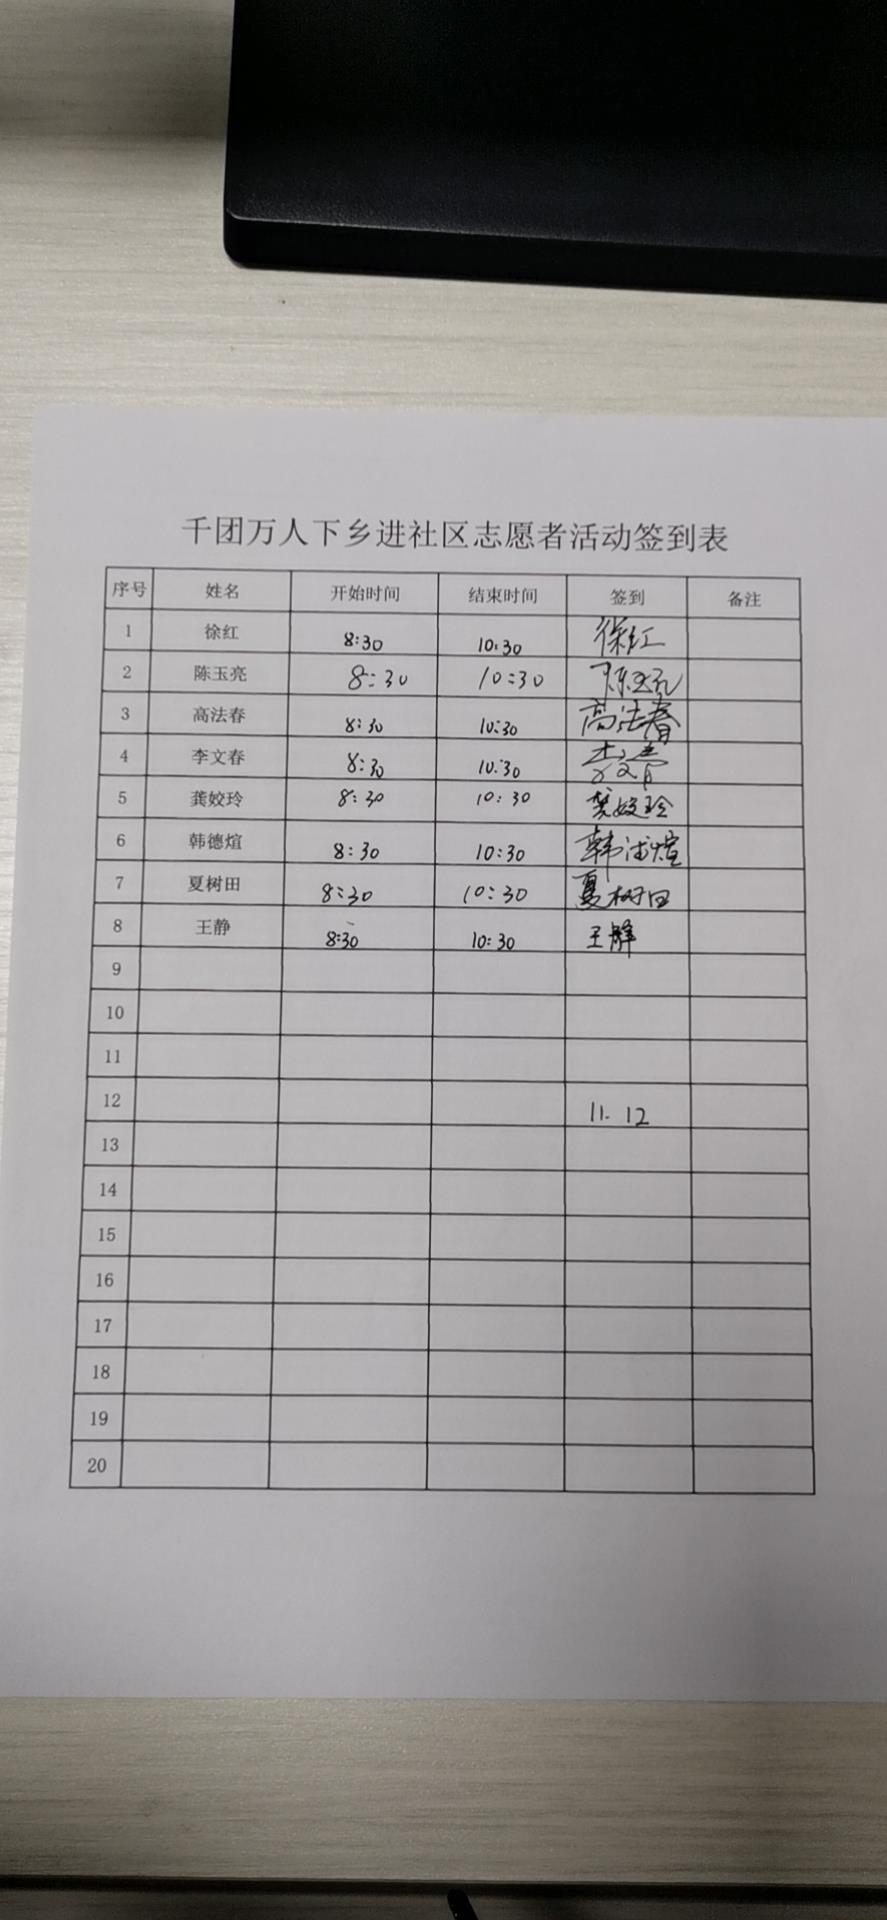 千团万人下乡进社区志愿者活动签到表
序号 姓名 开始时间 结束时间 签到 备注
1 徐红 8:30 10:30 徐红
2 陈玉亮 8:30 10:30 陈玉亮
3 高法春 8:30 10:30 高法春
4 李文春 8:30 10:30 李文春
5 龚姣玲 8:30 10:30 龚姣玲
6 韩德煊 8:30 10:30 韩德煊
7 夏树田 8:30 10:30 夏树田
8 王静 8:30 10:30 王静
9
10
11
12 11.12
13
14
15
16
17
18
19
20